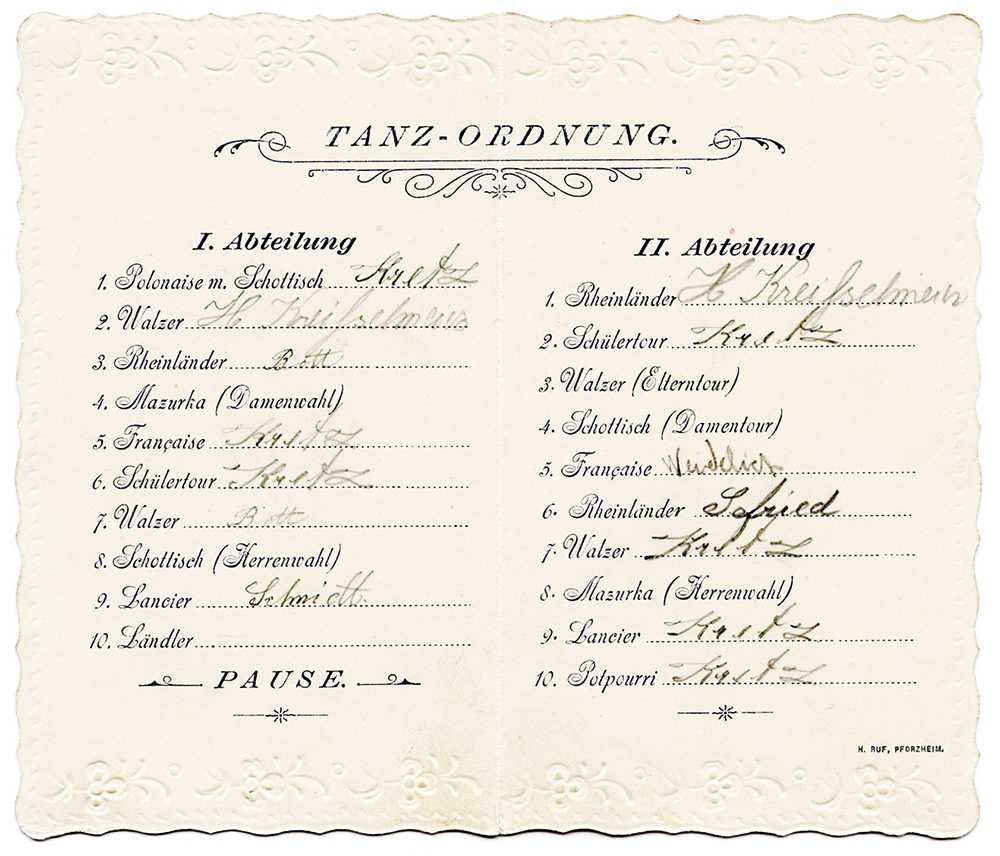 TANZ-ORDNUNG.
I. Abteilung
1. Polonaise m. Schottisch Kretz
2. Walzer H Kreißelmeier
3. Rheinländer Bott
4. Mazurka (Damenwahl)
5. Française Kretz
6. Schülertour Kretz
7. Walzer Bott
8. Schottisch (Herrenwahl)
9. Lancier Schmidt
10. Ländler
PAUSE.
II. Abteilung
1. Rheinländer H Kreißelmeier
2. Schülertour Kretz
3. Walzer (Elterntour)
4. Schottisch (Damentour)
5. Française
6. Rheinländer Sefried
7. Walzer Kretz
8. Mazurka (Herrenwahl)
9. Lancier Kretz
10. Potpourri Kretz
H. RUF, PFORZHEIM.